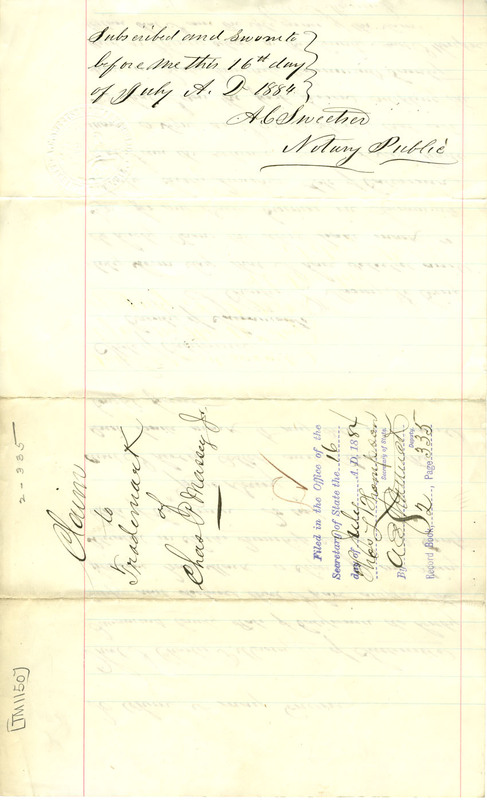 Subscribed and sworn to
before me this 16th day
of July A. D 1884
A C Sweetser
Notary Public
2-335
Claim
to
Trademark
of
Chas P Massey Jr
Filed in the Office of the
Secretary of State the 16
day of July A.D. 1884
Thos L Thompson
Secretary of State
By
Deputy
Record Book 2, Page 335
[TM1150]